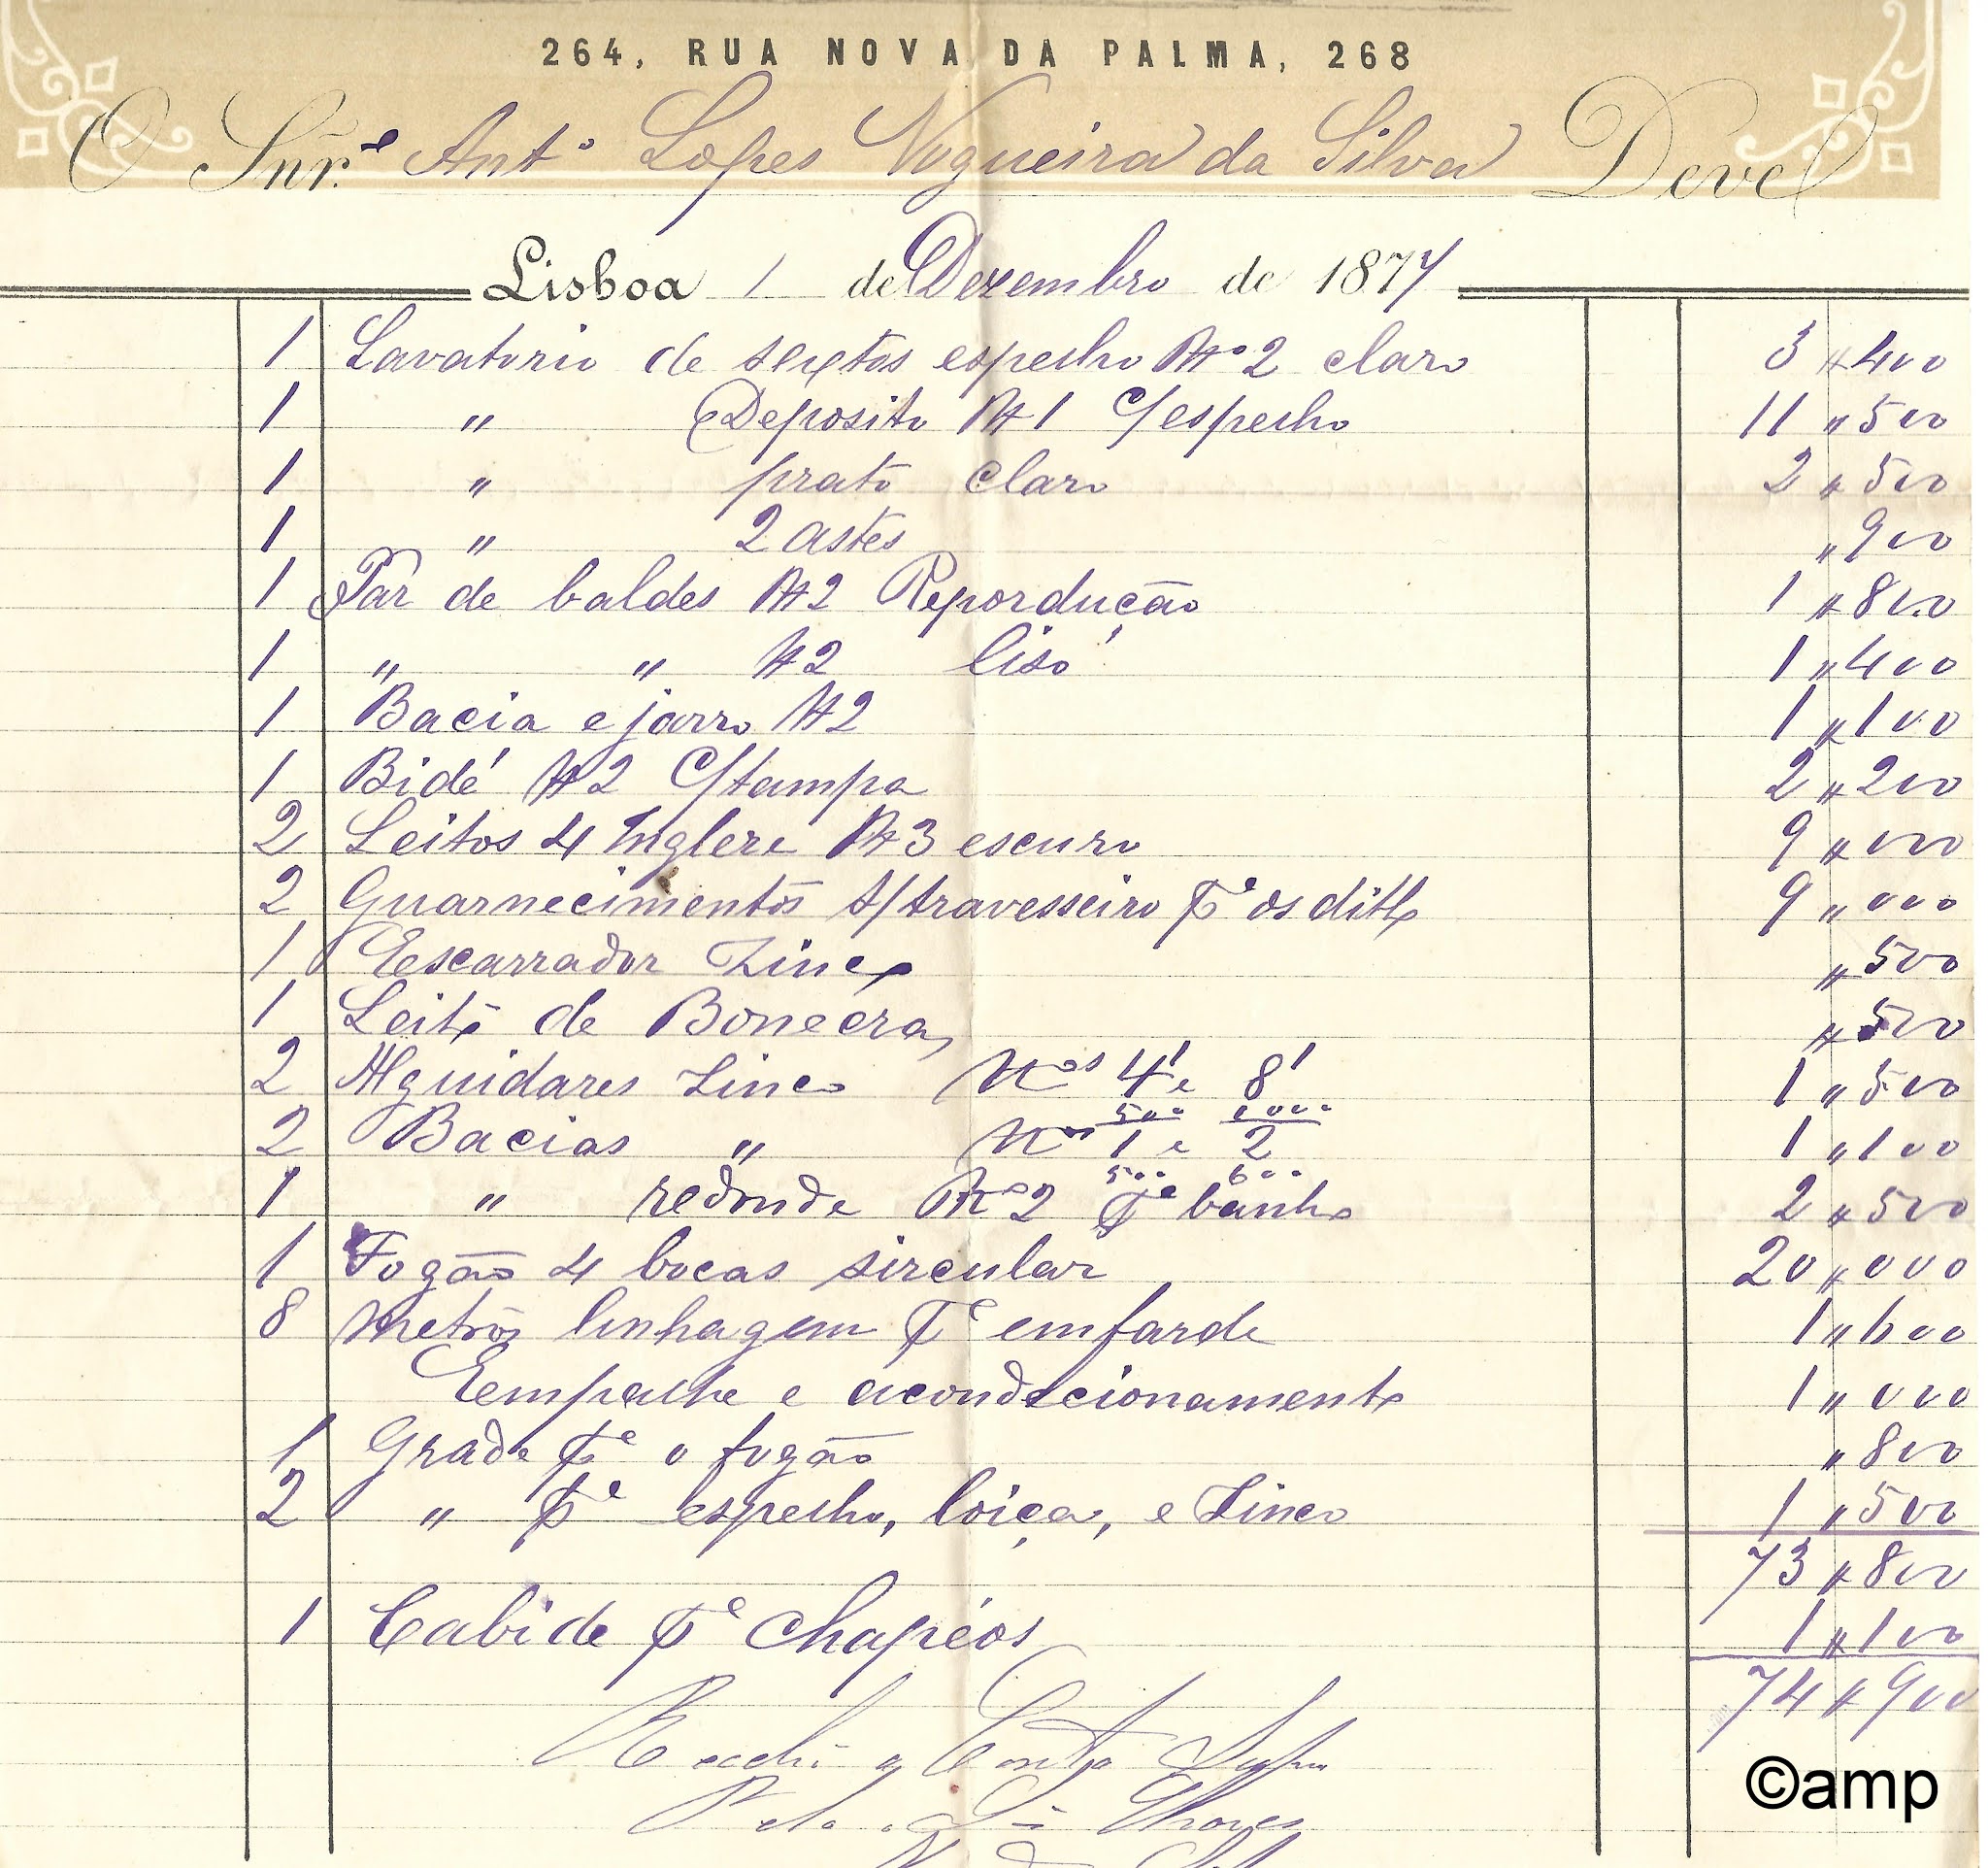 264, RUA NOVA DA PALMA, 268
O Snr.e Anto Lopes Nogueira da Silva Deve
Lisboa 1 de Dezembro de 1877
1 Lavatorio de sextos espelho No 2 claro 3 " 400
1 " Deposito N 1 c/ espelho 11 " 500
1 " prato claro 2 " 500
1 " 2 astes " 900
1 Par de baldes N 2 Reporducção 1 " 800
1 " " N 2 liso 1 " 400
1 Bacia e jarro N 2 1 " 100
1 Bidé N 2 C/ tampa 2 " 200
2 Leitos 4 Inglere N 3 escuro 9 " 000
2 Guarnecimentos s/ travesseiro Pa os ditos 9 " 000
1 Eescarrador Zinco " 500
1 Leito de Bonecra " 500
2 Alguidares Zinco Nos 4 e 8 1 " 500
500 1000
2 Bacias " Nos 1 e 2 1 " 100
500 600
1 " redonde No 2 Pa banho 2 " 500
1 Fogão 4 bocas sircular 20 " 000
8 Metros linhagem Pa emfarde 1 " 600
Eempalhe e acondecionamento 1 " 000
1 Grade Pa o fogão " 800
2 " Pa espelho, loiça, e Zinco 1 " 500
73 " 800
1 Cabide Pa Chapéos 1 " 100
74 " 900
Recebi a Conta
©amp